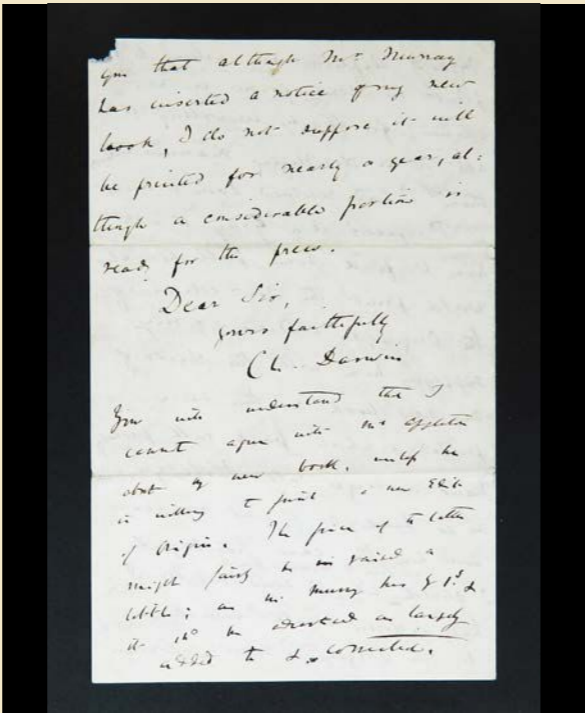 you that although Mr Murray
has inserted a notice of my new
book, I do not suppose it will
be printed for nearly a year, al:
though a considerable portion is
ready for the press.
Dear Sir,
yours faithfully
Ch. Darwin
You will understand that I
cannot agree with Mr Appleton
about my new book, unless he
is willing to print a new Edit
of Origin. The price of the latter
might fairly be raised a
little; as Mr Murray has by 1s &
it shd be advertised as largely
added to & corrected.